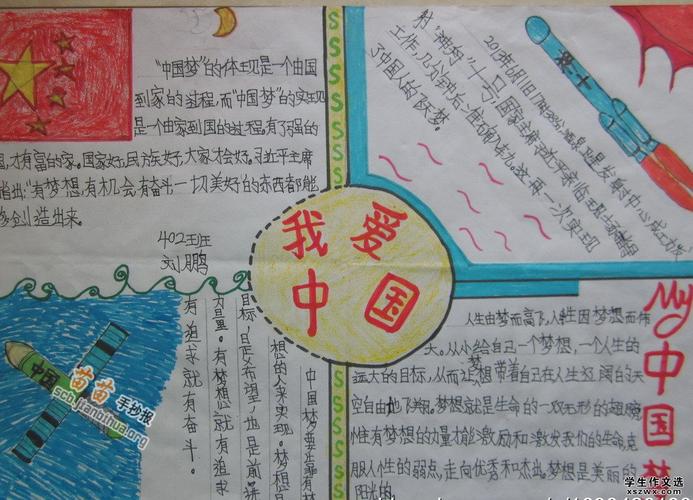 "中国梦"的体现是一个由国
到家的过程,而"中国梦"的实现
是一个由家到国的过程。有了强的
国,才有富的家。国家好,民族好,大家才会好。习近平主席
指出:"有梦想,有机会,有奋斗,一切美好的东西都能
够创造出来。
402班
刘鹏
神十
射"神舟"十号,国家主席习近平亲临现场
工作,几分钟后准确入轨。这再一次实现
了中国人的飞天梦。
我爱
中国
My中国梦
人生由梦而高飞,人生因梦想而伟
大。从小给自己一个梦想,一个人生的
远大的目标,从而让梦想带着自己在人生辽阔的天
空自由地飞翔。梦想就是生命的一双无形的翅膀
惟有梦想的力量才能激励和激发我们的生命,克
服人性的弱点,走向优秀和杰出。梦想是美丽的
阳光的
中国梦要靠有梦
想的人来实现。梦想
目标,是希望,也是前进
力量。有梦想就有追求
有追求就有奋斗。
中国
苗苗
手抄报
scb.jianbihua.org
学生作文选
xszwx.cn